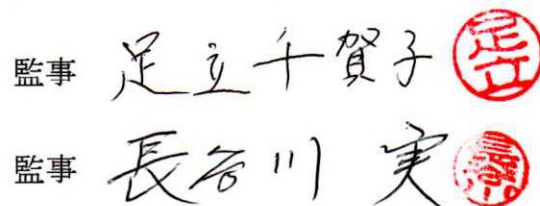 監事 足立千賀子 足立
監事 長谷川 実